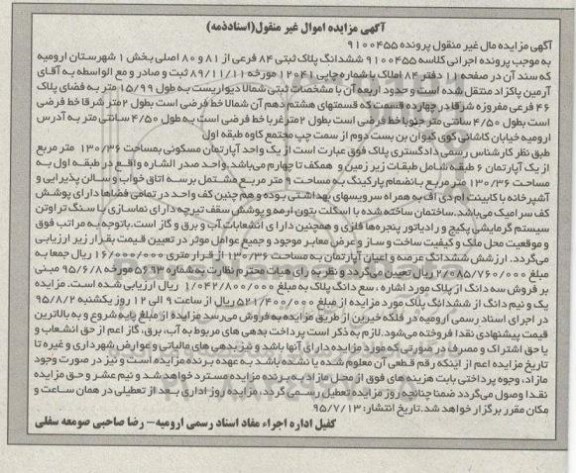 آگهی مزایده اموال غیر منقول(اسنادذمه)
آگهی مزایده مال غیر منقول پرونده ۹۱۰۰۴۵۵
به موجب پرونده اجرائی کلاسه ۹۱۰۰۴۵۵ ششدانگ پلاک ثبتی ۸۴ فرعی از ۸۱ و ۸۰ اصلی بخش ۱ شهرستان ارومیه
که سند آن در صفحه ۱۱ دفتر ۸۴ املاک با شماره چاپی ۱۲۰۴۱ مورخه ۸۹/۱۱/۱۱ ثبت و صادر و مع الواسطه به آقای
آرمین پاکزاد منتقل شده است و حدود اربعه آن با مشخصات ثبتی شمالا دیواریست به طول ۱۵/۹۹ متر به فضای پلاک
۴۶ فرعی مفروزه شرقا در چهارده قسمت که قسمتهای هشتم دهم آن شمالا خط فرضی است بطول ۲متر شرقا خط فرضی
است بطول ۴/۵۰ سانتی متر جنوبا خط فرضی است بطول ۲متر غربا خط فرضی است به طول ۴/۵۰ سانتی متر به آدرس
ارومیه خیابان کاشانی کوی کیوان بن بست دوم از سمت چپ مجتمع کاوه طبقه اول
طبق نظر کارشناس رسمی دادگستری پلاک فوق عبارت است از یک واحد آپارتمان مسکونی بمساحت ۱۳۰/۳۶ متر مربع
از یک آپارتمان ۶ طبقه شامل طبقات زیر زمین و همکف تا چهارم می‌باشد.واحد صدر الشاره واقع در طبقه اول به
مساحت ۱۳۰/۳۶ متر مربع بانضمام پارکینگ به مساحت ۹ متر مربع مشتمل بر سه اتاق خواب و سالن پذیرایی و
آشپزخانه با کابینت ام دی اف به همراه سرویسهای بهداشتی بوده و هم چنین کف واحد در تمامی فضاها دارای پوشش
کف سرامیک می‌باشد.ساختمان ساخته شده با اسکلت بتون آرمه و پوشش سقف تیرچه دارای نماسازی با سنگ تراوتن
سیستم گرمایشی پکیج و رادیاتور پنجره‌ها فلزی و همچنین دارای انشعابات آب و برق و گاز است.باتوجه به مراتب فوق
و موقعیت محل ملک و کیفیت ساخت و ساز و عرض معابر موجود و جمیع عوامل موثر در تعیین قیمت بقرار زیر ارزیابی
می‌گردد. ارزشش ششدانگ عرصه و اعیان آپارتمان به مساحت ۱۳۰/۳۶ از قرار متری ۱۶/۰۰۰/۰۰۰ ریال جمعا به
مبلغ ۲/۰۸۵/۷۶۰/۰۰۰ ریال تعیین می‌گردد و نظر به رای هیات محترم نظارت به شماره ۵۶۹۳ مورخه ۹۵/۶/۸ مبنی
بر فروش سه دانگ از پلاک مورد اشاره ، سه دانگ پلاک به مبلغ ۱/۰۴۲/۸۰۰/۰۰۰ ریال ارزیابی شده است. مزایده
یک و نیم دانگ از ششدانگ پلاک مورد مزایده از مبلغ ۵۲۱/۴۰۰/۰۰۰ ریال از ساعت ۹ الی ۱۲ روز یکشنبه ۹۵/۸/۲
در اجرای اسناد رسمی ارومیه در فلکه خیرین از طریق مزایده به فروش می‌رسد مزایده از مبلغ پایه شروع و به بالاترین
قیمت پیشنهادی نقدا فروخته می‌شود.لازم به ذکر است پرداخت بدهی های مربوط به آب، برق، گاز اعم از حق انشعاب و
یا حق اشتراک و مصرف در صورتی که مورد مزایده دارای آنها باشد و نیز بدهی های مالیاتی و عوارض شهرداری و غیره تا
تاریخ مزایده اعم از اینکه رقم قطعی آن معلوم شده یا نشده باشد به عهده برنده مزایده است و نیز در صورت وجود
مازاد، وجوه پرداختی بابت هزینه های فوق از محل مازاد به برنده مزایده مسترد خواهد شد و نیم عشر و حق مزایده
نقدا وصول می‌گردد ضمنا چنانچه روز مزایده تعطیل رسمی گردد، مزایده روز اداری بعد از تعطیلی در همان ساعت و
مکان مقرر برگزار خواهد شد.تاریخ انتشار: ۹۵/۷/۱۳
کفیل اداره اجراء مفاد اسناد رسمی ارومیه– رضا صاحبی صومعه سفلی